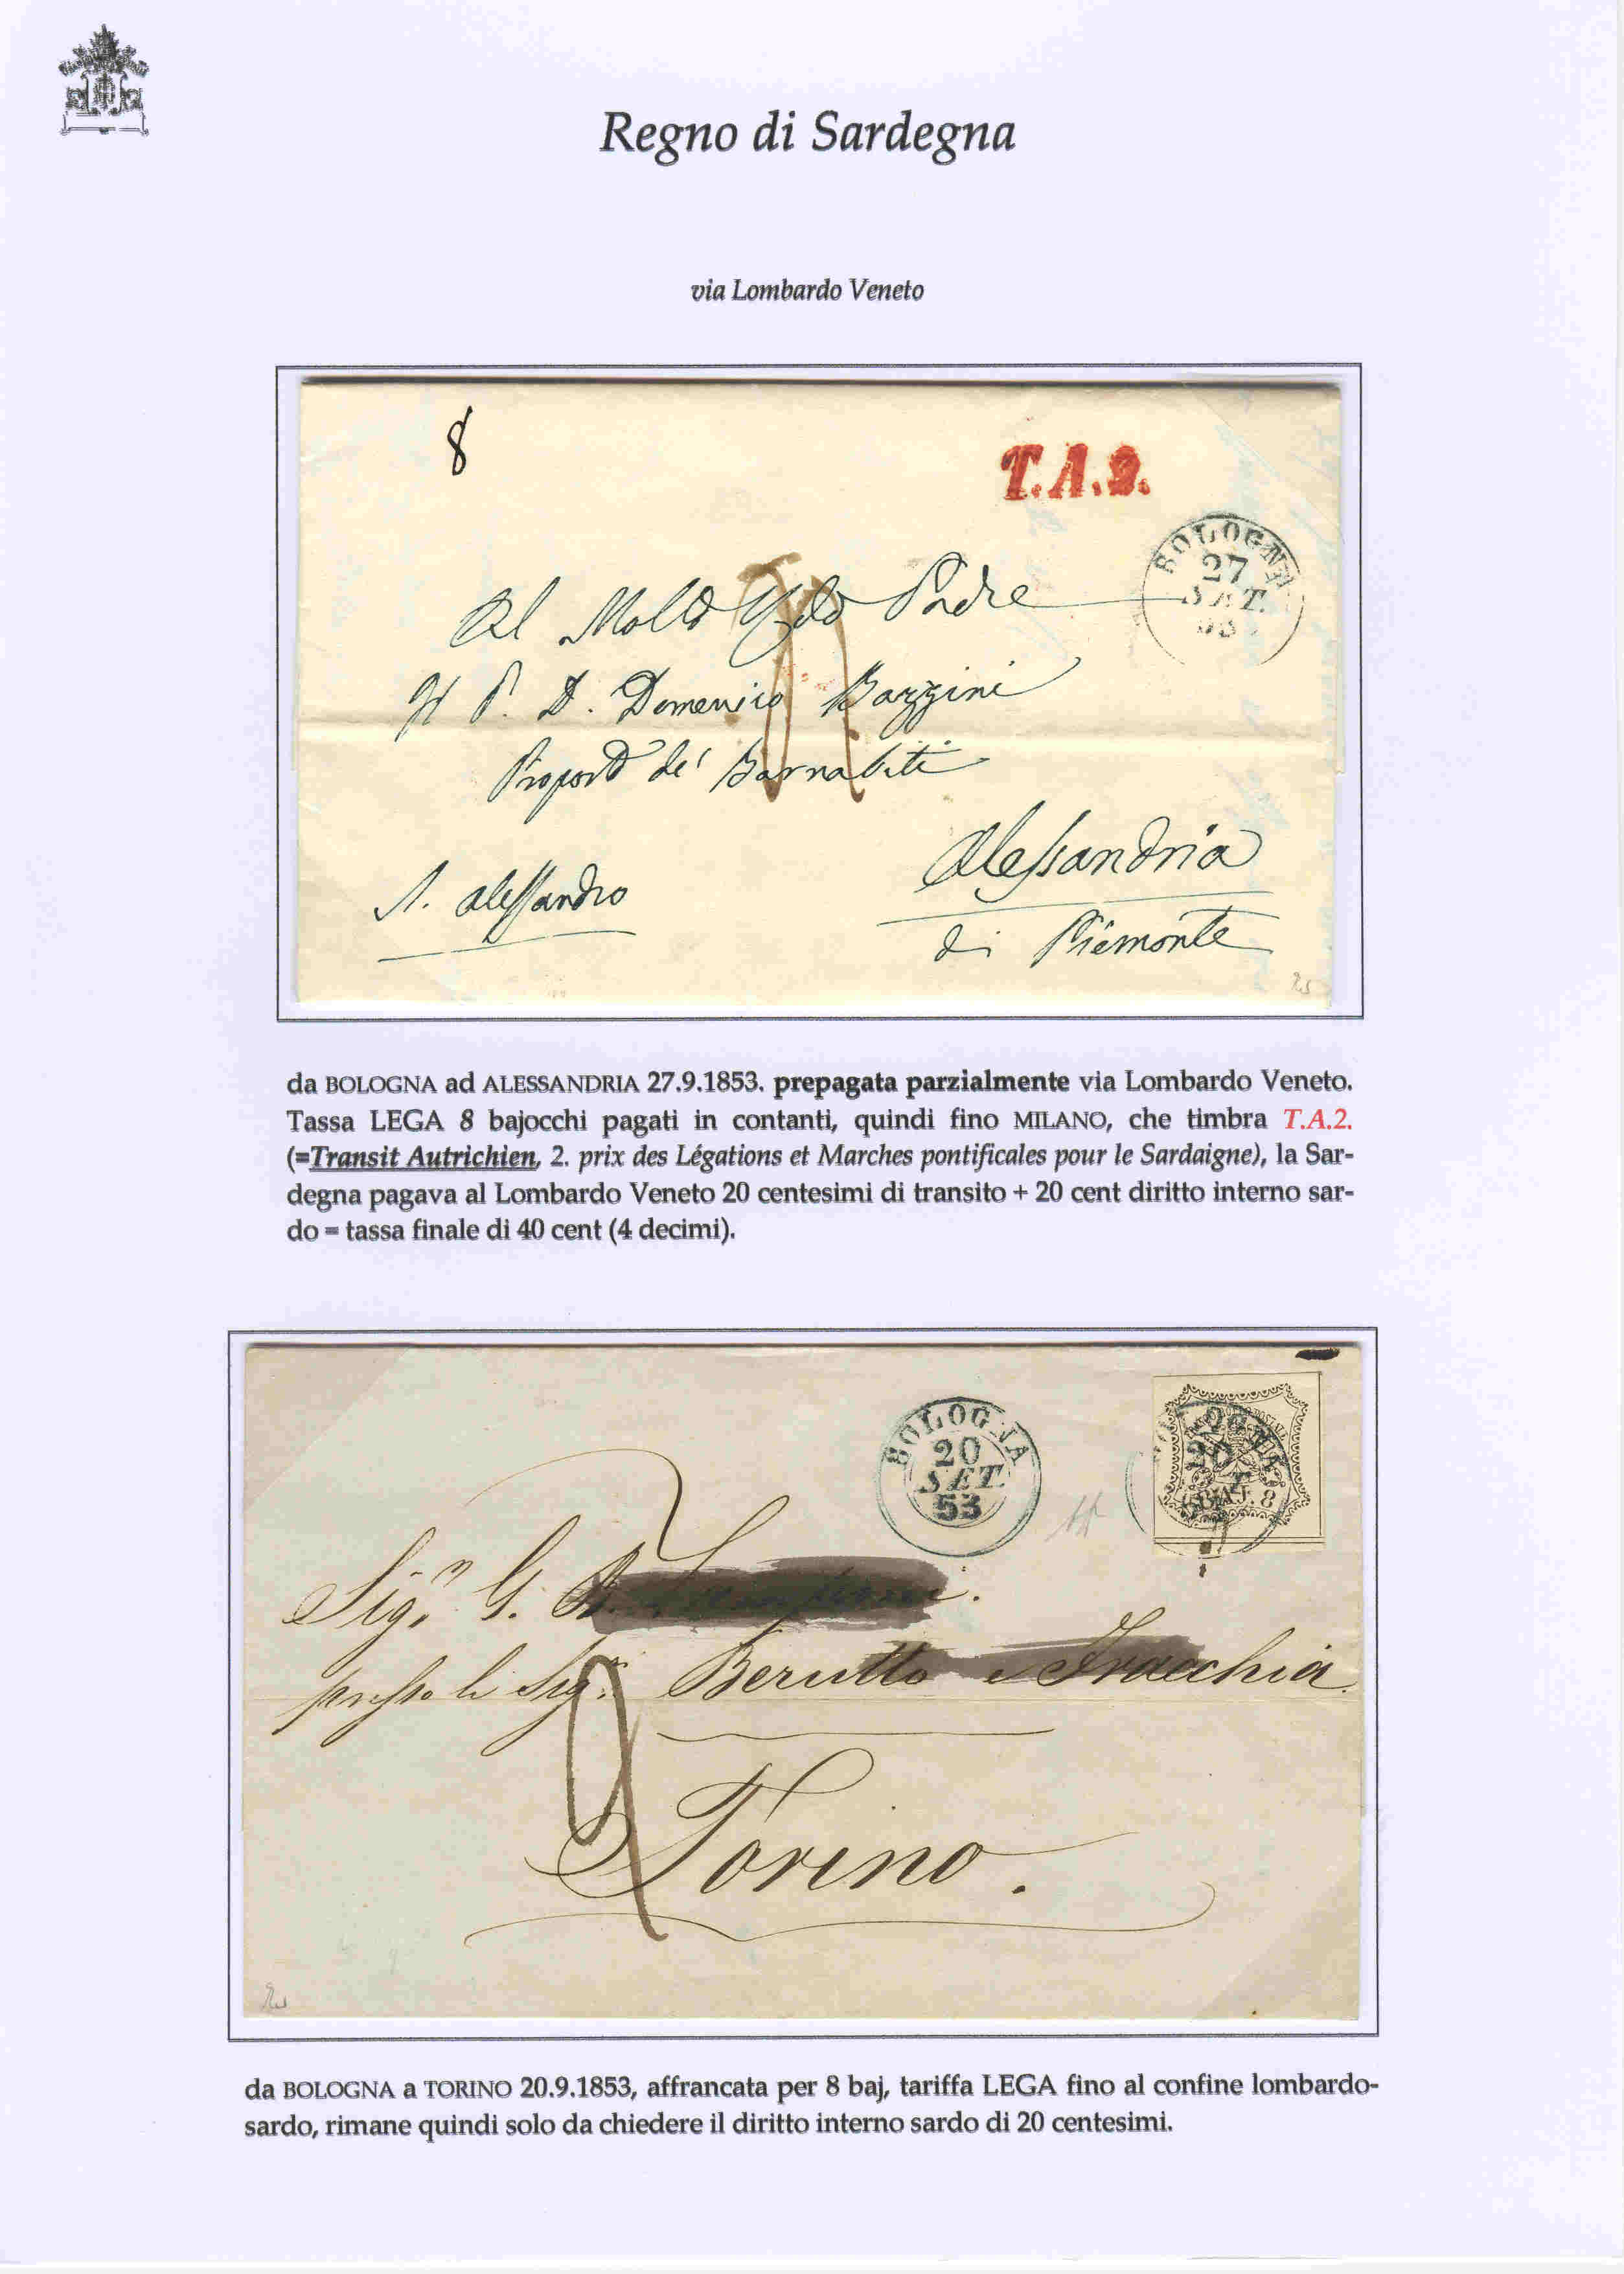 Regno di Sardegna
via Lombardo Veneto
8
T.A.2.
BOLOGNA
27
SET.
53
Al Molto Rdo Padre
Il P. D. Domenico Bazzini
Propost de' Barnabiti
S. Alessandro
Alessandria
di Piemonte
da BOLOGNA ad ALESSANDRIA 27.9.1853. prepagata parzialmente via Lombardo Veneto.
Tassa LEGA 8 bajocchi pagati in contanti, quindi fino MILANO, che timbra T.A.2.
(=Transit Autrichien, 2. prix des Légations et Marches pontificales pour le Sardaigne), la Sar-
degna pagava al Lombardo Veneto 20 centesimi di transito + 20 cent diritto interno sar-
do = tassa finale di 40 cent (4 decimi).
BOLOGNA
20
SET.
53
BAJ. 8
Sigr. G. B.
presso li Sigri Berutto e Fracchia
2
Torino.
da BOLOGNA a TORINO 20.9.1853, affrancata per 8 baj, tariffa LEGA fino al confine lombardo-
sardo, rimane quindi solo da chiedere il diritto interno sardo di 20 centesimi.